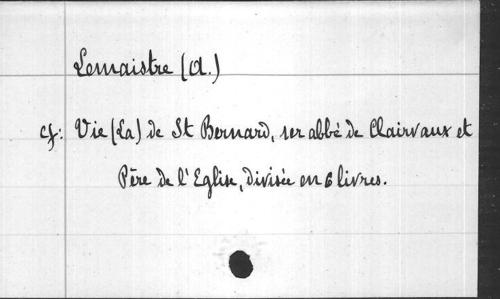 Lemaistre (A.)
cf: Vie (La) de St Bernard, 1er abbé de Clairvaux et
Père de l'Eglise, divisée en 6 livres.